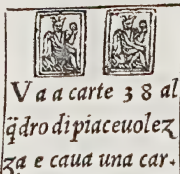 Va a carte 38 al
q̃dro di piaceuolez
za e caua una car-